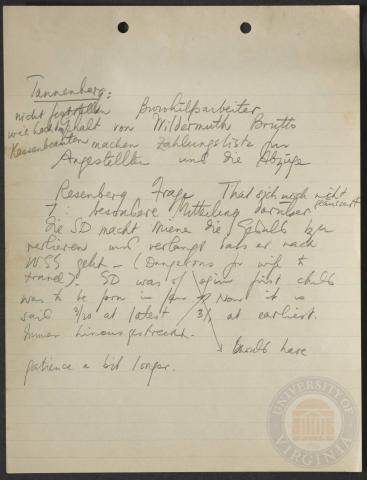 Tannenberg:
nicht feststellen Bürohilfsarbeiter
wie hoch Gehalt von Wildermuth Brutto
Kassenbeamten machen Zahlungsliste für
Angestellten und die Abzüge
Rosenberg Frage That sich noch nicht
geäussert
besondere Mitteilung darüber
die SD macht Miene die Geduld zu
verlieren und verlangt dass er nach
geht - (Dangerous for wife to
travel). SD was of first child
was to be born in Now it is
said 3/20 at latest 3/1 at earliest.
Immer hinausgestreckt.
Should have
patience a bit longer.
UNIVERSITY OF VIRGINIA